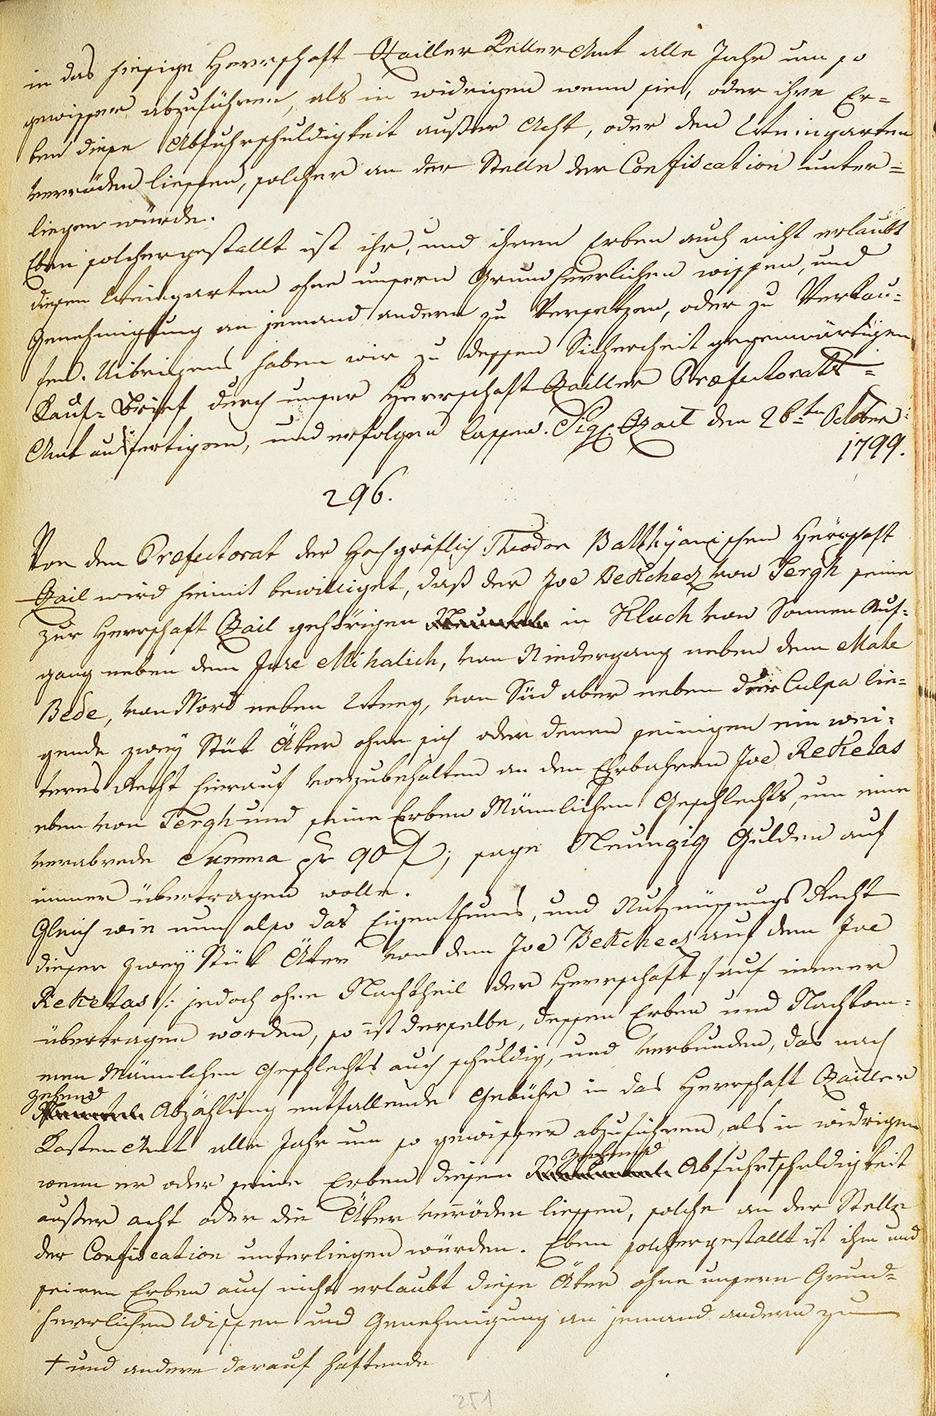 in das hiesige Herrschaft Ozailler Keller Amt alle Jahr um so
gewisser abzuführen, als in widrigen wenn sie, oder ihre Er=
ben diese Abfuhrschuldigkeit außer Acht, oder den Weingarten
veröden liessen, solcher an der Stelle der Confiscation unter=
liegen würde.
Eben solchergestallt ist ihr, und ihren Erben auch nicht erlaubt
diesen Weingarten ohne unsern Grundherrlichen wissen, und
Genehmigung an jemand andern zu Versetzen, oder zu Verkau=
fen. Uibrigens haben wir zu dessen Sicherheit gegenwärtigen
Kauf=Brief durch unser Herrschaft Ozailler Præfectorats=
Amt ausfertigen, und erfolgen lassen. Sig. Ozail den 26ten October
1799.
296.
Von dem Præfectorat der Hochgräflich Theodor Batthyanischen Herrschaft
Ozail wird hiemit bewilliget, daß der Joe Bekchecz von Tergh seine
zur Herrschaft Ozail gehörigen in Kluch von Sonnen Auf=
gang neben dem Jure Mihalich, von Niedergang neben dem Mate
Bede, von Nord neben Weeg, von Süd aber neben der Culpa lie=
gende zwey Stük Äker ohne sich oder denen seinigen ein wei=
teres Recht hierauf vorzubehalten an den Ehrbahren Joe Reketas
eben von Tergh und seine Erben Männlichen Geschlechts, um eine
verabrede Summa pr 90 f; sage Neunzig Gulden auf
immer übertragen wolle.
Gleich wie nun also das Eigenthums, und Nutznüssungs Recht
dieser zwey Stük Äker von dem Joe Bekchecz auf dem Joe
Reketas /: jedoch ohne Nachtheil der Herrschaft :/ auf immer
übertragen worden, so ist derselbe, dessen Erben und Nachkom=
men Männlichen Geschlechts auch schuldig, und verbunden, das nach
zehend
Abzählung entfallende Gebühr in das Herrschaft Ozailler
Kasten Amt alle Jahr um so gewisser abzuführen, als in widrigen
zehend
wenn er oder seine Erben diesen Abfuhr†schuldigkeit
außer acht oder die Äker veröden liessen, solche an der Stelle
der Confiscation unterliegen würden. Eben solchergestallt ist ihm und
seinen Erben auch nicht erlaubt diese Äker ohne unsern Grund=
herrlichen Wissen und Genehmigung an jemand andern zu
† und andere darauf haftende
251